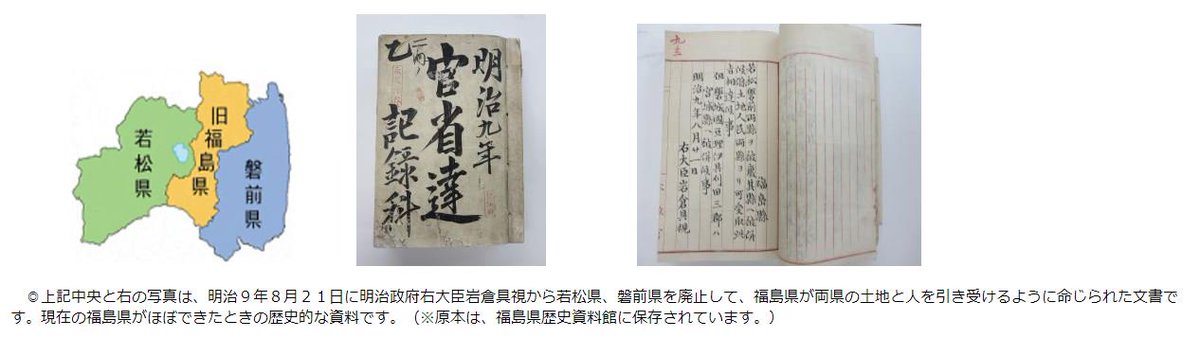 若松県
旧福島県
磐前県
明治九年
官省達
乙
記録科
九三
福島縣
若松磐前両縣ヲ被廃其縣ヘ被併
候條土地人民両縣ヨリ可受取此
旨相達候事
但磐城國亘理伊具刈田三郡ハ
宮城縣ヘ被併候事
明治九年八月廿一日
右大臣岩倉具視
◎上記中央と右の写真は、明治９年８月２１日に明治政府右大臣岩倉具視から若松県、磐前県を廃止して、福島県が両県の土地と人を引き受けるように命じられた文書で
す。現在の福島県がほぼできたときの歴史的な資料です。（※原本は、福島県歴史資料館に保存されています。）